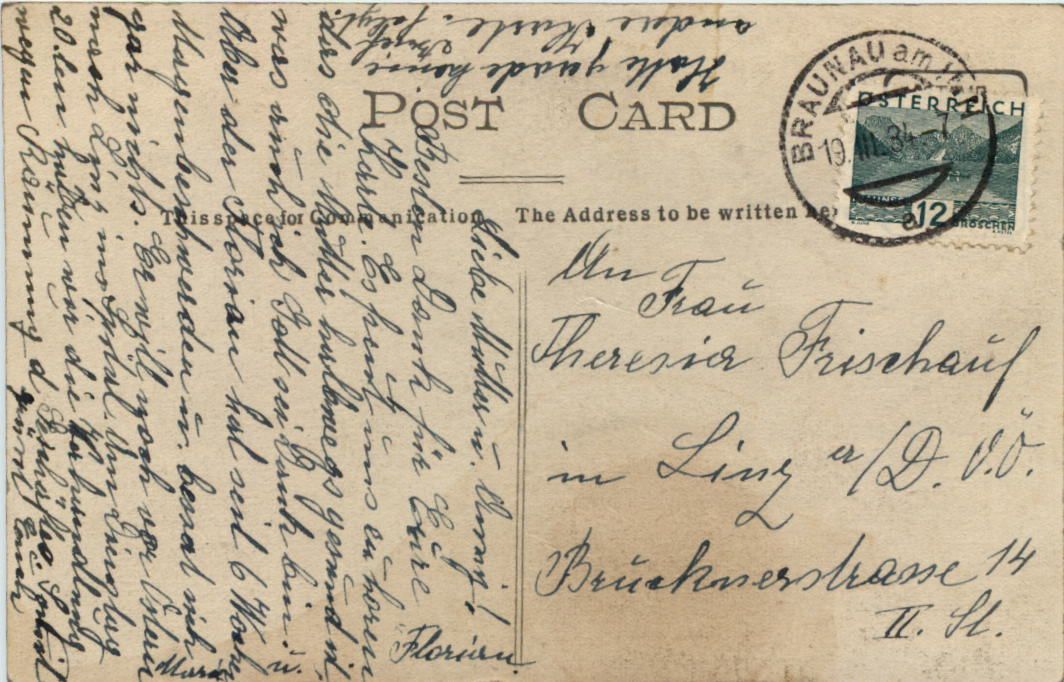 POST CARD
This space for Communication
The Address to be written he
BRAUNAU am INN
19.III.34-7
a
ÖSTERREICH
12
GROSCHEN
An
Frau
Theresia Frischauf
in Linz a/D. O.Ö.
Brucknerstrasse 14
II. St.
Liebe Mutter u.
Besten Dank für Eure
Karte. Es freut uns zu hören
dass die Mutter halbwegs gesund ist,
was auch ich Gott sei Dank bin.
Aber der Florian hat seit 6 Woch.
Magenbeschwerden u.
gar nichts. Er will noch vor Ostern
nach Linz ins Spital. Am Dienstag
20. den haben wir die Verhandlung
wegen Räumung d
Florian
u.
Maria
Hatte gerade keine
andere Karte.